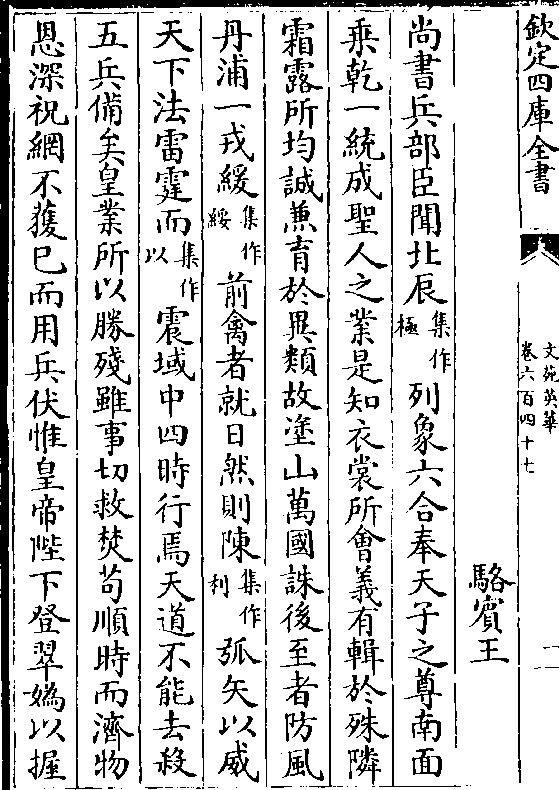 欽定四庫全書
文苑英華
卷六百四十七
一
駱賓王
尚書兵部臣聞北辰集作極列象六合奉天子之尊南面
乗乾一統成聖人之業是知衣裳所會義有輯於殊隣
霜露所均誠兼育於異類故塗山萬國誅後至者防風
丹浦一戎緩集作綏前禽者就日然則陳集作利弧矢以威
天下法雷霆而集作以震域中四時行焉天道不能去殺
五兵備矣皇業所以勝殘雖事切救焚苟順時而濟物
恩深祝網不獲已而用兵伏惟皇帝陛下登翠媯以握